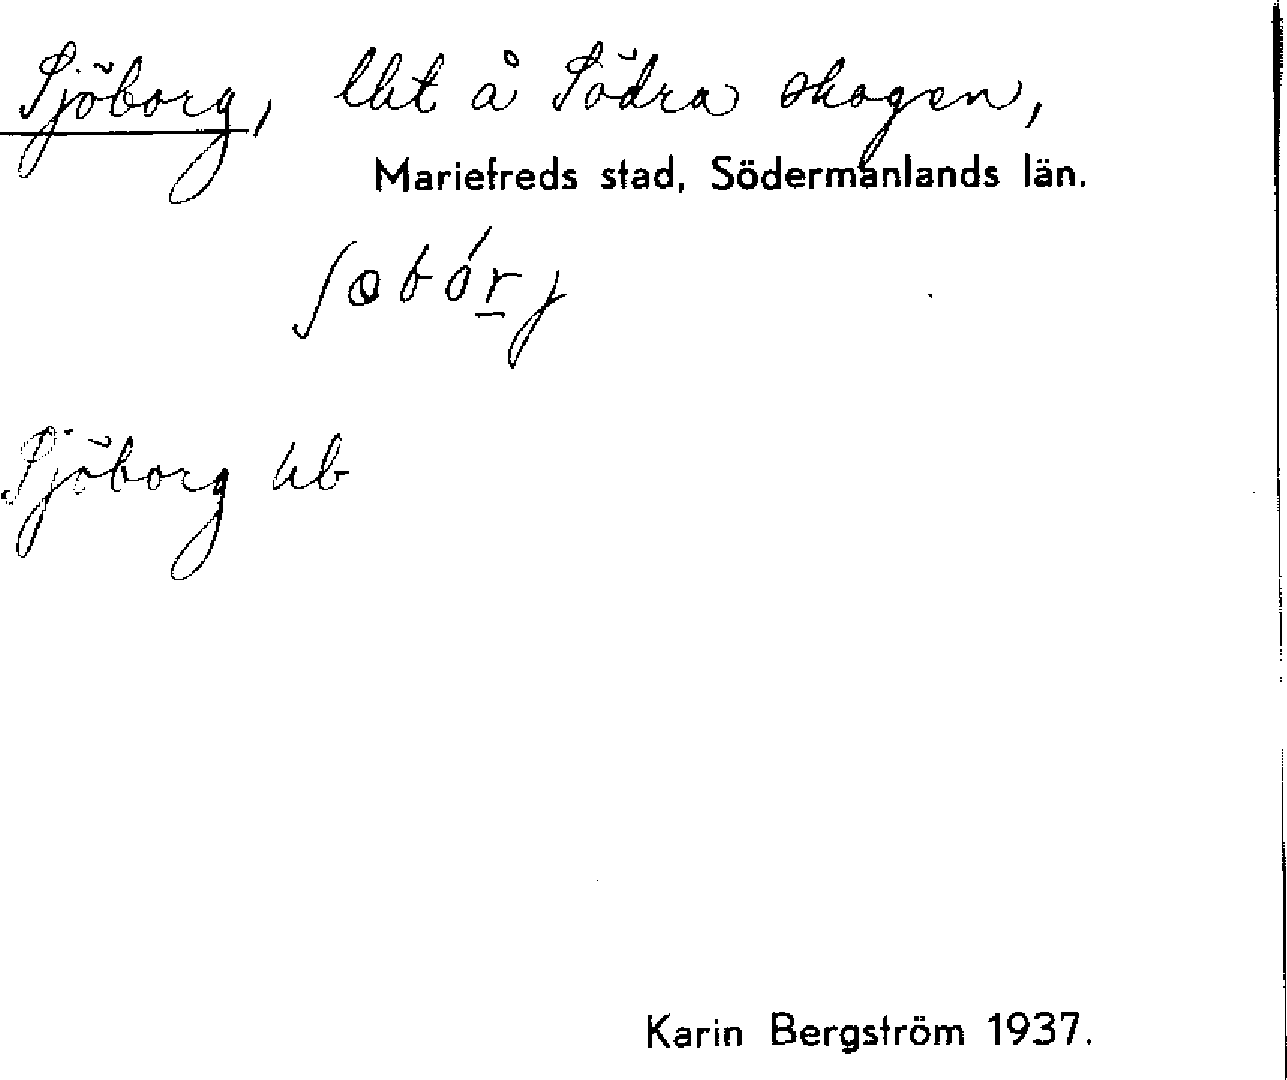 Sjöborg, lht å Södra skogen,
Mariefreds stad, Södermanlands län.
ʃɵbórj
Sjöborg ub
Karin Bergström 1937.